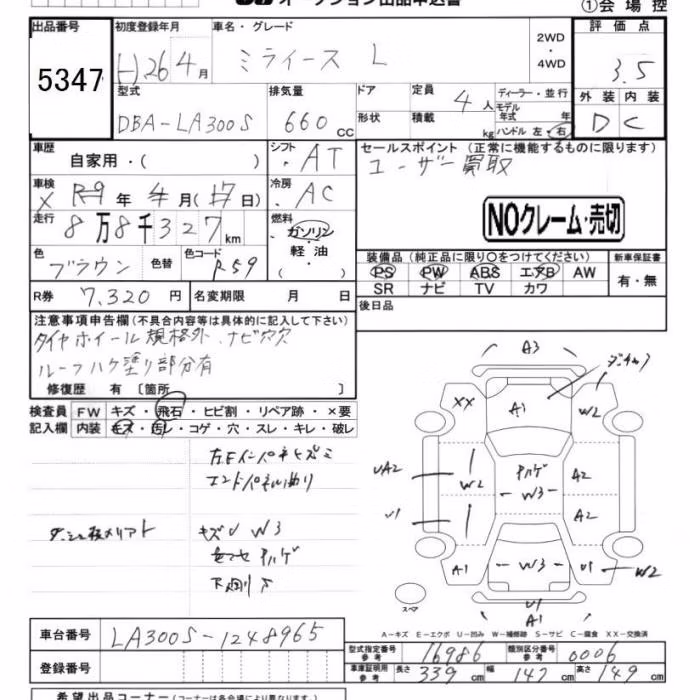 オークション出品申込書
①会場控
出品番号
5347
初度登録年月
H26年4月
車名・グレード
ミライース L
2WD
4WD
評価点
3.5
外装 内装
D C
型式
DBA-LA300S
排気量
660 CC
ドア
形状
定員
4人
積載
kg
ディーラー・並行
モデル
年式 年
ハンドル 左・右
車歴
自家用・( )
シフト
AT
セールスポイント(正常に機能するものに限ります)
ユーザー買取
車検
× R-9年4月(17日)
冷房
AC
NOクレーム・売切
走行
8万8千327km
燃料
ガソリン
軽油
( )
色
ブラウン
色替
色コード
R59
装備品(純正品に限り○をつけてください)
PS PW ABS エアB AW
SR ナビ TV カワ
新車保証書
有・無
R券
7,320円
名変期限 月 日
後日品
注意事項申告欄(不具合内容等は具体的に記入して下さい)
タイヤホイール規格外、ナビ穴穴
ルーフハゲ塗り部分有
修復歴 有 〔箇所 〕
検査員 FW キズ・飛石・ヒビ割・リペア跡・×要
記入欄 内装 キズ・汚レ・コゲ・穴・スレ・キレ・破レ
エンドパネル曲り
キズU W3
下廻りサ
A3
XX
A1
W2
UA2
W2
W3
A2
U1
A2
A1
W3
U1
W2
U1
A1
スペア
A－キズ E－エクボ U－凹み W－補修跡 S－サビ C－腐食 XX－交換済
車台番号
LA300S-1248965
登録番号
型式指定番号
参考
16986
類別区分番号
参考
0006
車庫証明用
参考
長さ 339cm 幅 147cm 高さ 149cm
希望出品コーナー(コーナーは各会場により異なります)